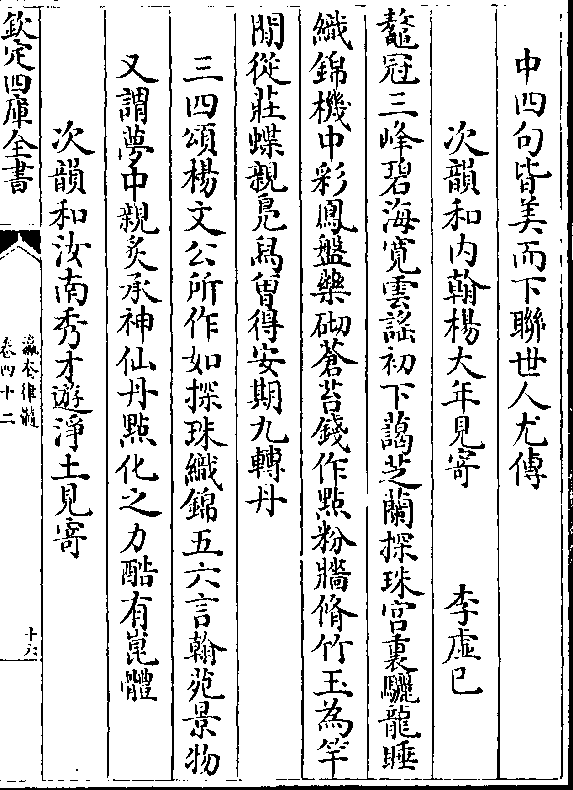 中四句皆美而下聯世人尤傳
次韻和内翰楊大年見寄　李虛己
鼇冠三峰碧海寛雲謡初下藹芝蘭探珠宫裏驪龍睡
織錦機中彩鳳盤藥砌蒼苔錢作點粉牆脩竹玉為竿
閒從莊蝶親鳧舄曽得安期九轉丹
三四頌楊文公所作如探珠織錦五六言翰苑景物
又謂夢中親炙承神仙丹點化之力酷有崑體
次韻和汝南秀才遊淨土見寄
欽定四庫全書
瀛奎律髓
卷四十二
十六